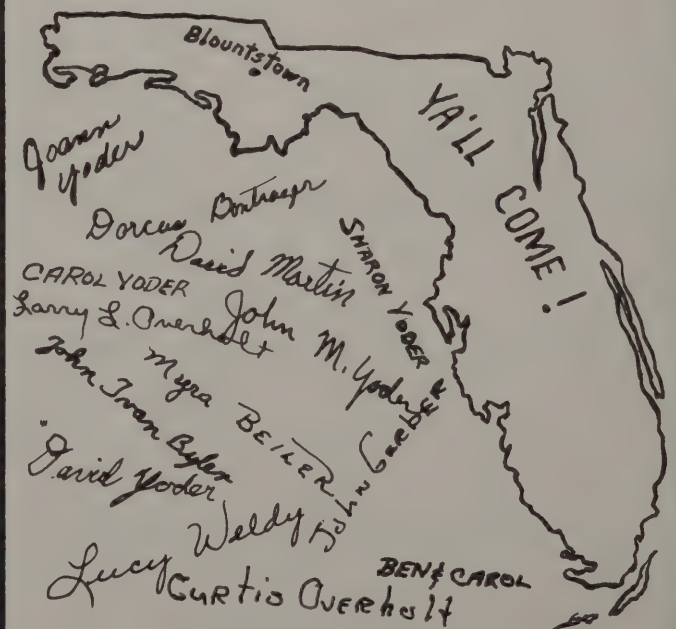 Blountstown
YA'LL
COME!
Joann
Yoder
Dorcas Bontrager
David Martin
SHARON YODER
CAROL YODER
Larry L. Overholt
John M. Yoder
Myra BEILER
John Ivan Byler
John GARBER
David Yoder
Lucy Weldy
BEN & CAROL
Curtis Overholt